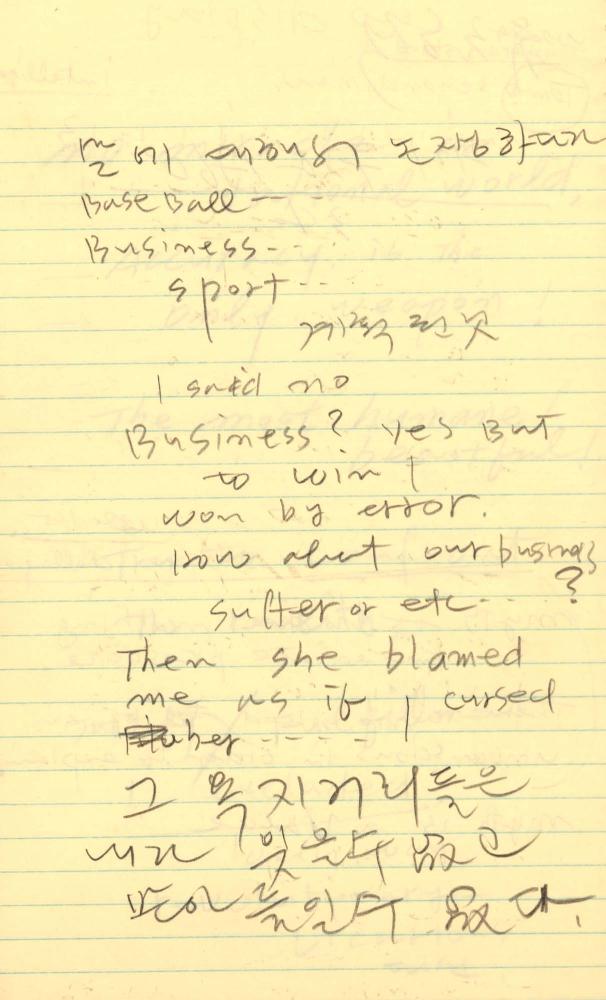 돈에 대해서 논쟁하다가
BaseBall----
Business---
sport---
I said no
Business? yes But
to win I
won by error.
How about our business
suffer or etc---?
Then she blamed
me as if I cursed
her -----
그 욕지거리들은
내가 잊을수 없고
받아들일수 없다.